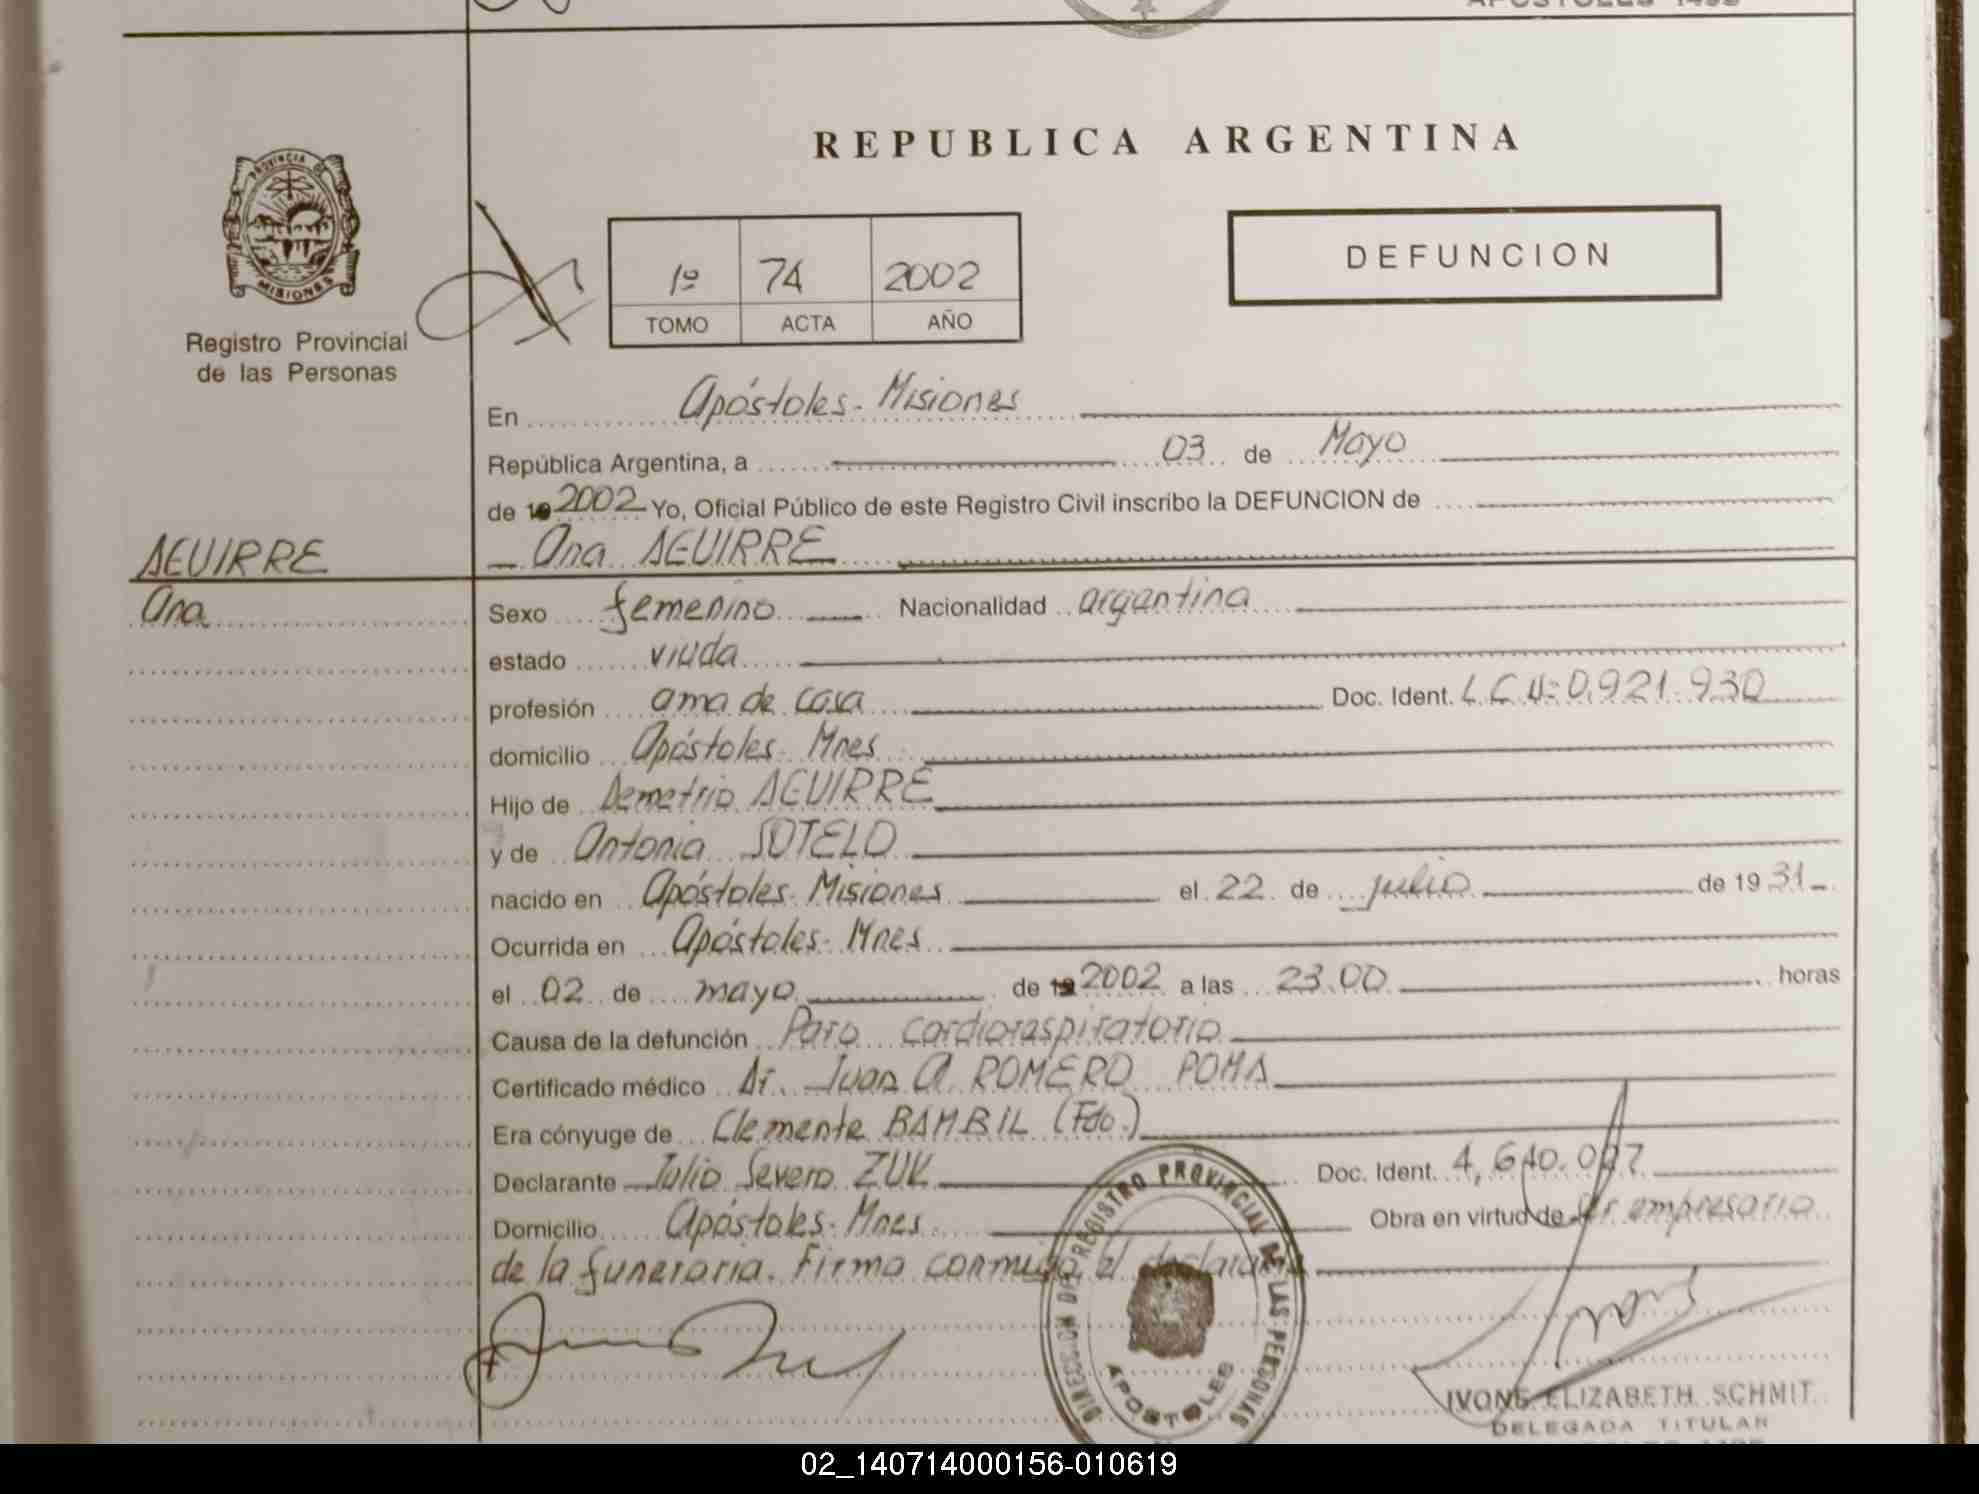 PROVINCIA DE
MISIONES
Registro Provincial
de las Personas
REPUBLICA ARGENTINA
1º 74 2002
TOMO ACTA AÑO
DEFUNCION
En Apóstoles - Misiones
República Argentina, a 03 de Mayo
de 19 2002 Yo, Oficial Público de este Registro Civil inscribo la DEFUNCION de
AGUIRRE
Ana AGUIRRE
Ana
Sexo femenino Nacionalidad argentina
estado viuda
profesión ama de casa Doc. Ident. L.C. Nº 0.921.930
domicilio Apóstoles - Mnes
Hijo de Demetrio AGUIRRE
y de Antonia SOTELO
nacido en Apóstoles - Misiones el 22 de julio de 19 31
Ocurrida en Apóstoles - Mnes
el 02 de mayo de 19 2002 a las 23.00 horas
Causa de la defunción Paro cardiorespiratorio
Certificado médico Dr. Juan A. ROMERO POMA
Era cónyuge de Clemente BAMBIL (Fdo.)
Declarante Julio Severo ZUK Doc. Ident. 4,640.047
Domicilio Apóstoles - Mnes Obra en virtud de ser empresario
de la funeraria. Firma conmigo el declarante
DIRECCION DEL REGISTRO PROVINCIAL DE LAS PERSONAS
APOSTOLES
IVONE ELIZABETH SCHMIT
DELEGADA TITULAR
02_140714000156-010619